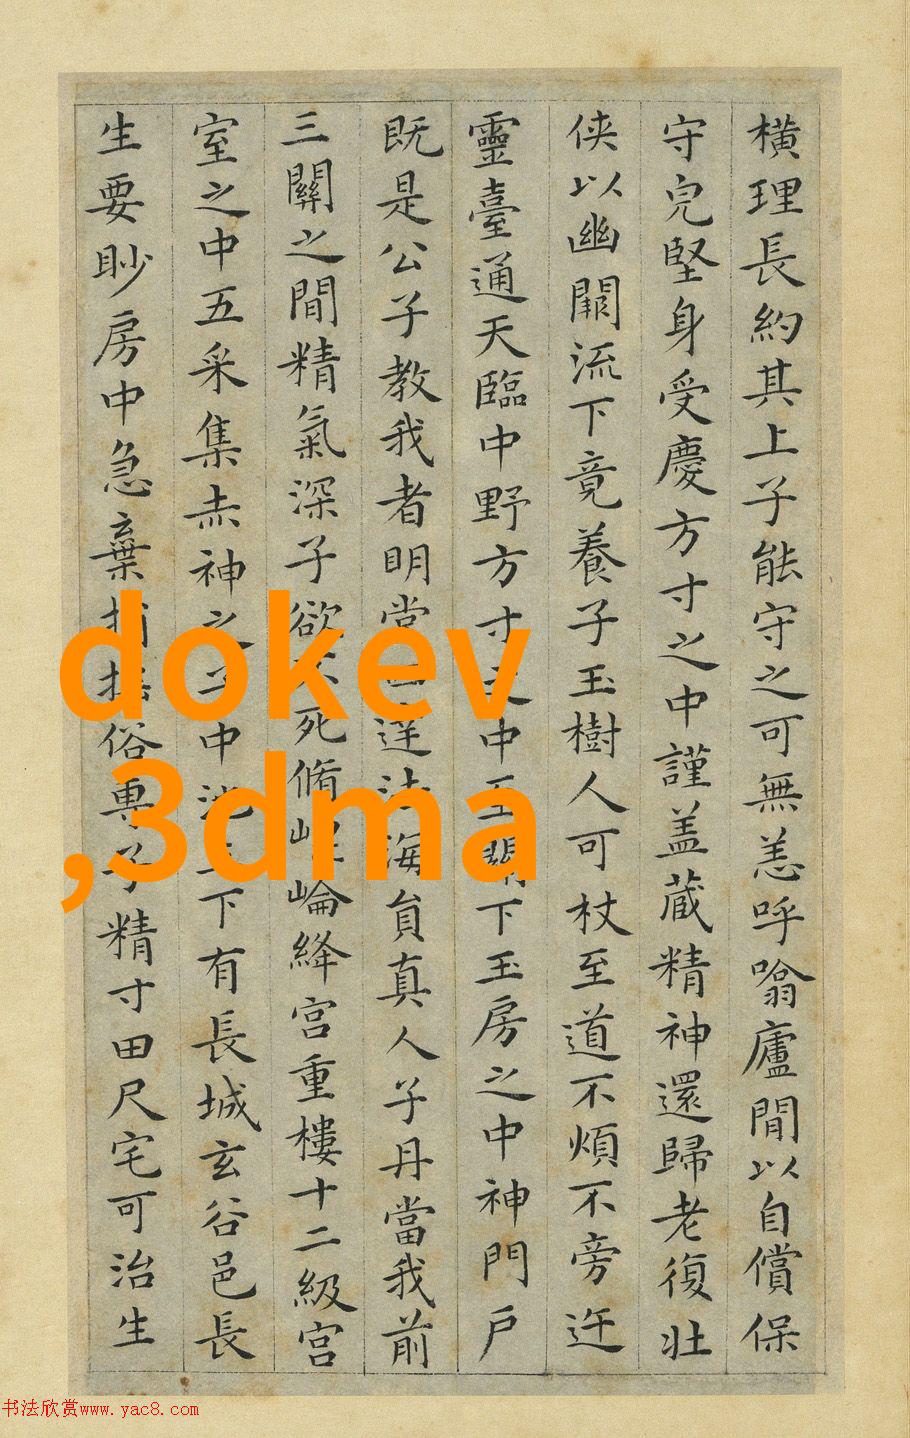 橫理長約其上子能守之可無恙呼噏廬閒以自償保
守皃堅身受慶方寸之中謹盖藏精神還歸老復壯
侠以幽闕流下竟養子玉樹人可杖至道不煩不旁迕
靈臺通天臨中野方寸之中至關下玉房之中神門戶
既是公子教我者明堂四逹法海貟真人子丹當我前
三關之閒精氣深子欲不死脩崐崘絳宮重樓十二級宮
室之中五采集赤神之子中池立下有長城玄谷邑長
生要眇房中急棄捐搖俗專子精寸田尺宅可治生
dokev
,3dma
书法欣赏www.yac8.com